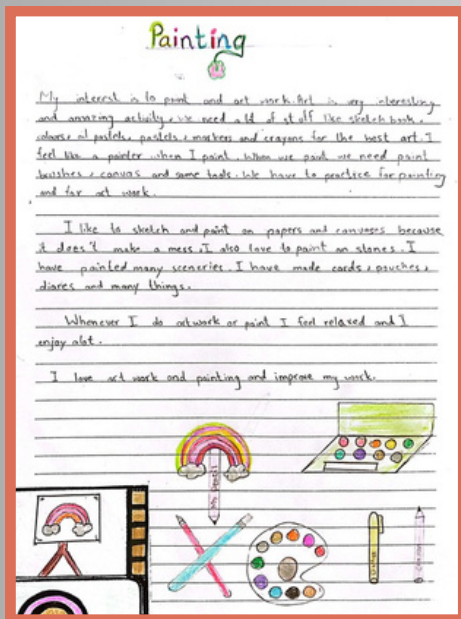 Painting
My interest is to paint and art work. Art is very interesting
and amazing activity, we need alot of stuff like sketch book,
colours, oil pastels, pastels, markers and crayons for the best art. I
feel like a painter when I paint. When we paint we need paint
brushes, canvas and some tools. We have to practice for painting
and for art work.
I like to sketch and paint on papers and canvases because
it does't make a mess. I also love to paint on stones. I
have painted many sceneries. I have made cards, pouches,
diares and many things.
Whenever I do artwork or paint I feel relaxed and I
enjoy alot.
I love art work and painting and improve my work.
My Pencil